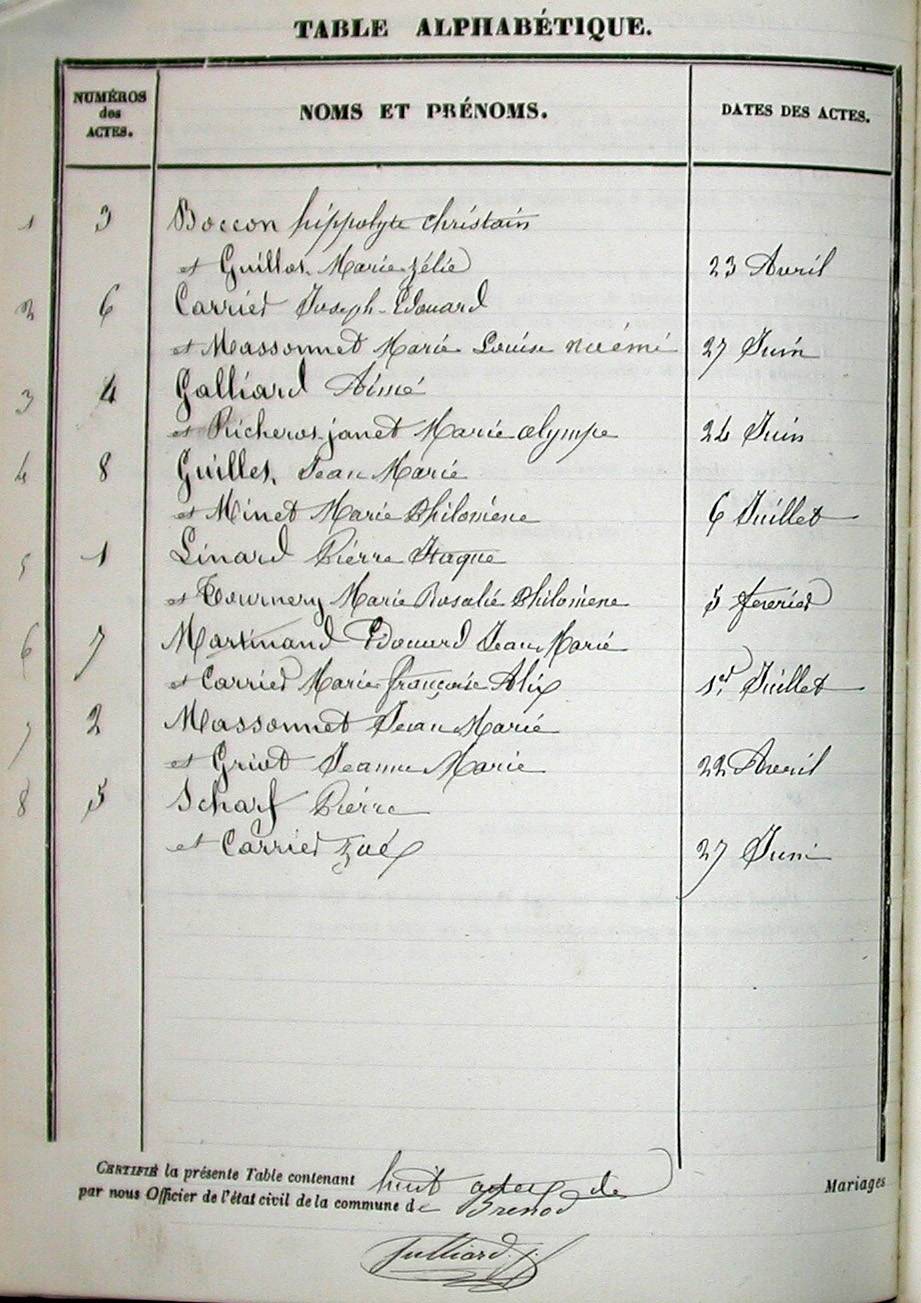 TABLE ALPHABÉTIQUE.
NUMÉROS des ACTES. NOMS ET PRÉNOMS. DATES DES ACTES.
1 3 Boccon hippolyte Christain
et Guillot Marie Zélie 23 Avril
2 6 Carrier Joseph-Edouard
et Massonnet Marie Louise Noémé 27 Juin
3 4 Galliard Aimé
et Richerot-janet Marie Olympe 24 Juin
4 8 Guillet Jean Marie
et Minet Marie Philomène 6 Juillet
5 1 Linard Pierre
et Tournery Marie Rosalie Philomène 5 fevrier
6 7 Martinand Edouard Jean Marie
et Carrier Marie françoise Alix 1er Juillet
7 2 Massonnet Jean Marie
et Griot Jeanne Marie 22 Avril
8 5 Scharf Pierre
et Carrier Zoé 27 Juin
CERTIFIÉ la présente Table contenant huit actes de Mariages
par nous Officier de l'état civil de la commune de Brenod